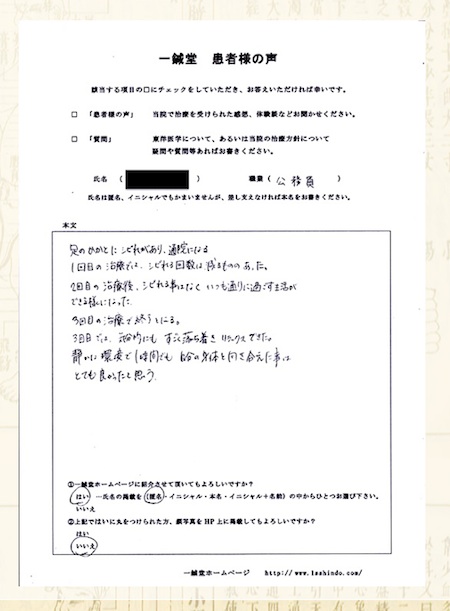 一鍼堂 患者様の声
該当する項目の□にチェックをしていただき、お答えいただければ幸いです。
□ 「患者様の声」 当院で治療を受けられた感想、体験談などお聞かせください。
□ 「質問」 東洋医学について、あるいは当院の治療方針について
疑問や質問等あればお書きください。
氏名 ( ) 職業 ( 公務員 )
氏名は匿名、イニシャルでもかまいませんが、差し支えなければ本名をお書きください。
本文
足のかかとにシビれがあり、通院になる
1回目の治療では、シビれる回数は減るものの あった。
2回目の治療後、シビれる事はなく いつも通りに過ごす生活が
できる様になった
3回目の治療で終了となる。
3回目では、 にも すごく落ち着き リラックスできた。
静かな環境で1時間でも 自分の身体と向き合えた事は
とても良かったと思う。
①一鍼堂ホームページに紹介させて頂いてもよろしいですか?
はい …氏名の掲載を(匿名・イニシャル・本名・イニシャル+名前)の中からひとつお選び下さい。
いいえ
②上記ではいに丸をつけられた方、顔写真をHP上に掲載してもよろしいですか?
はい
いいえ
一鍼堂ホームページ http://www.1sshindo.com/